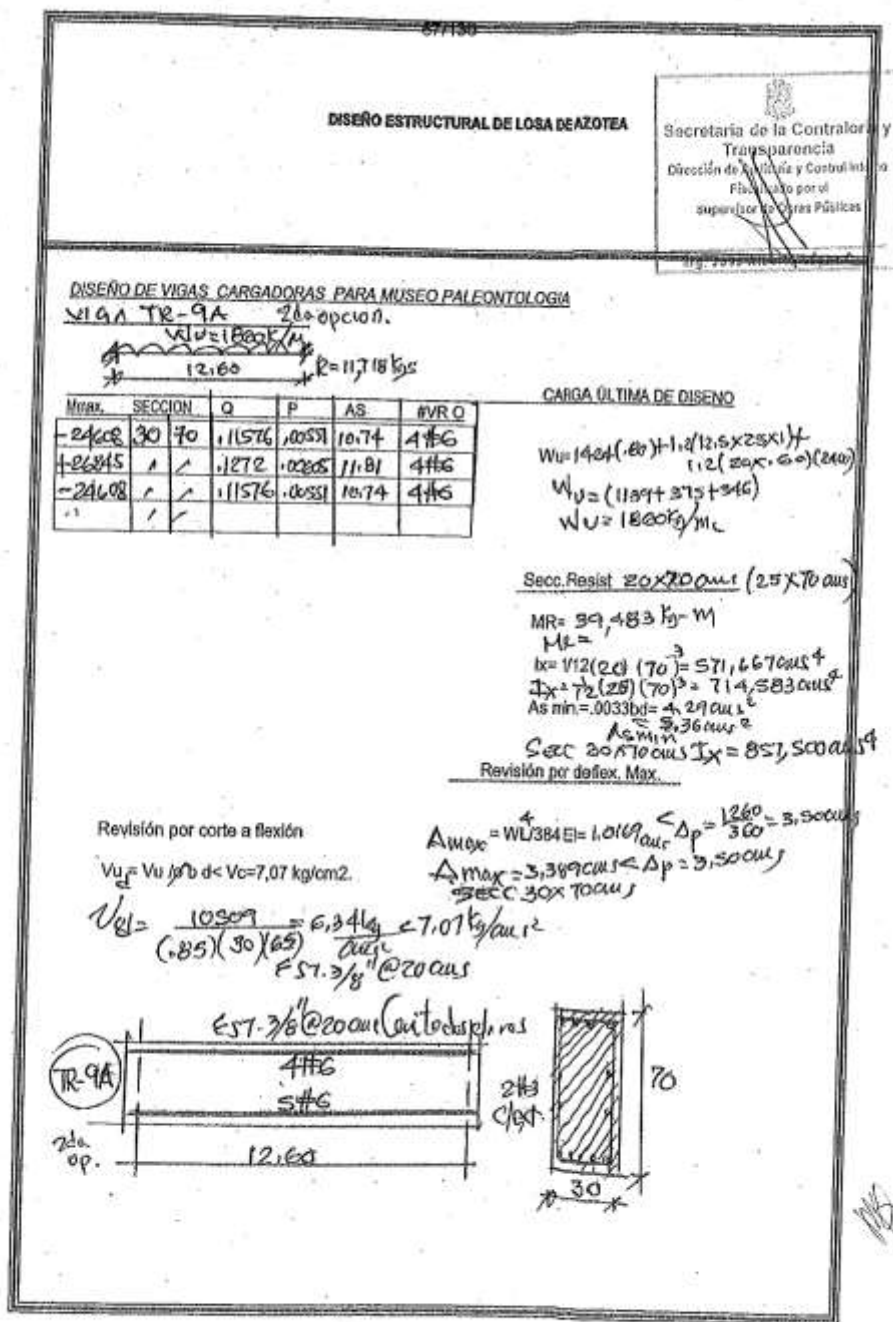 67/130
DISEÑO ESTRUCTURAL DE LOSA DE AZOTEA
Secretaria de la Contraloria y
Transparencia
Dirección de Auditoría y Control Interno
Fiscalizado por el
Supervisor de Obras Públicas
DISEÑO DE VIGAS CARGADORAS PARA MUSEO PALEONTOLOGIA
VIGA TR-9A 2da opcion.
WU=1860K/M
12.60 R=11,718 kgs
Mmax. SECCION Q P AS #VR O
-24608 30 70 .11576 .00551 10.74 4#6
+26845 " " .1272 .00605 11.81 4#6
-24608 " " .11576 .00551 10.74 4#6
CARGA ÚLTIMA DE DISEÑO
Wu=1424(.80)+1.2(12.5x25x1)+
1.2(20x.60)(2400)
WU=(1139+375+346)
WU=1860Kg/ML
Secc.Resist 20x70cms (25x70cms)
MR= 39,483 kg-M
MR=
Ix= 1/12(20)(70)3= 571,667cms4
Ix=1/12(25)(70)3= 714,583cms4
As min.=.0033bd= 4.29cms2
Asmin = 5.36cms2
Secc 30x70cms Ix = 857,500cms4
Revisión por deflex. Max.
Δmax = WL4/384EI= 1.0169cms < Δp= 1260/360 = 3.50cms
Δmax=3.389cms<Δp=3.50cms
SECC 30x70cms
Revisión por corte a flexión
Vud= Vu /ø b d< Vc=7,07 kg/cm2.
Vud= 10509/(.85)(30)(65) = 6.34kg/cms2 <7.07kg/cms2
EST.3/8"@20cms
EST-3/8"@20cms
TR-9A
4#6
5#6
2#3
70
2da. op.
12.60
30